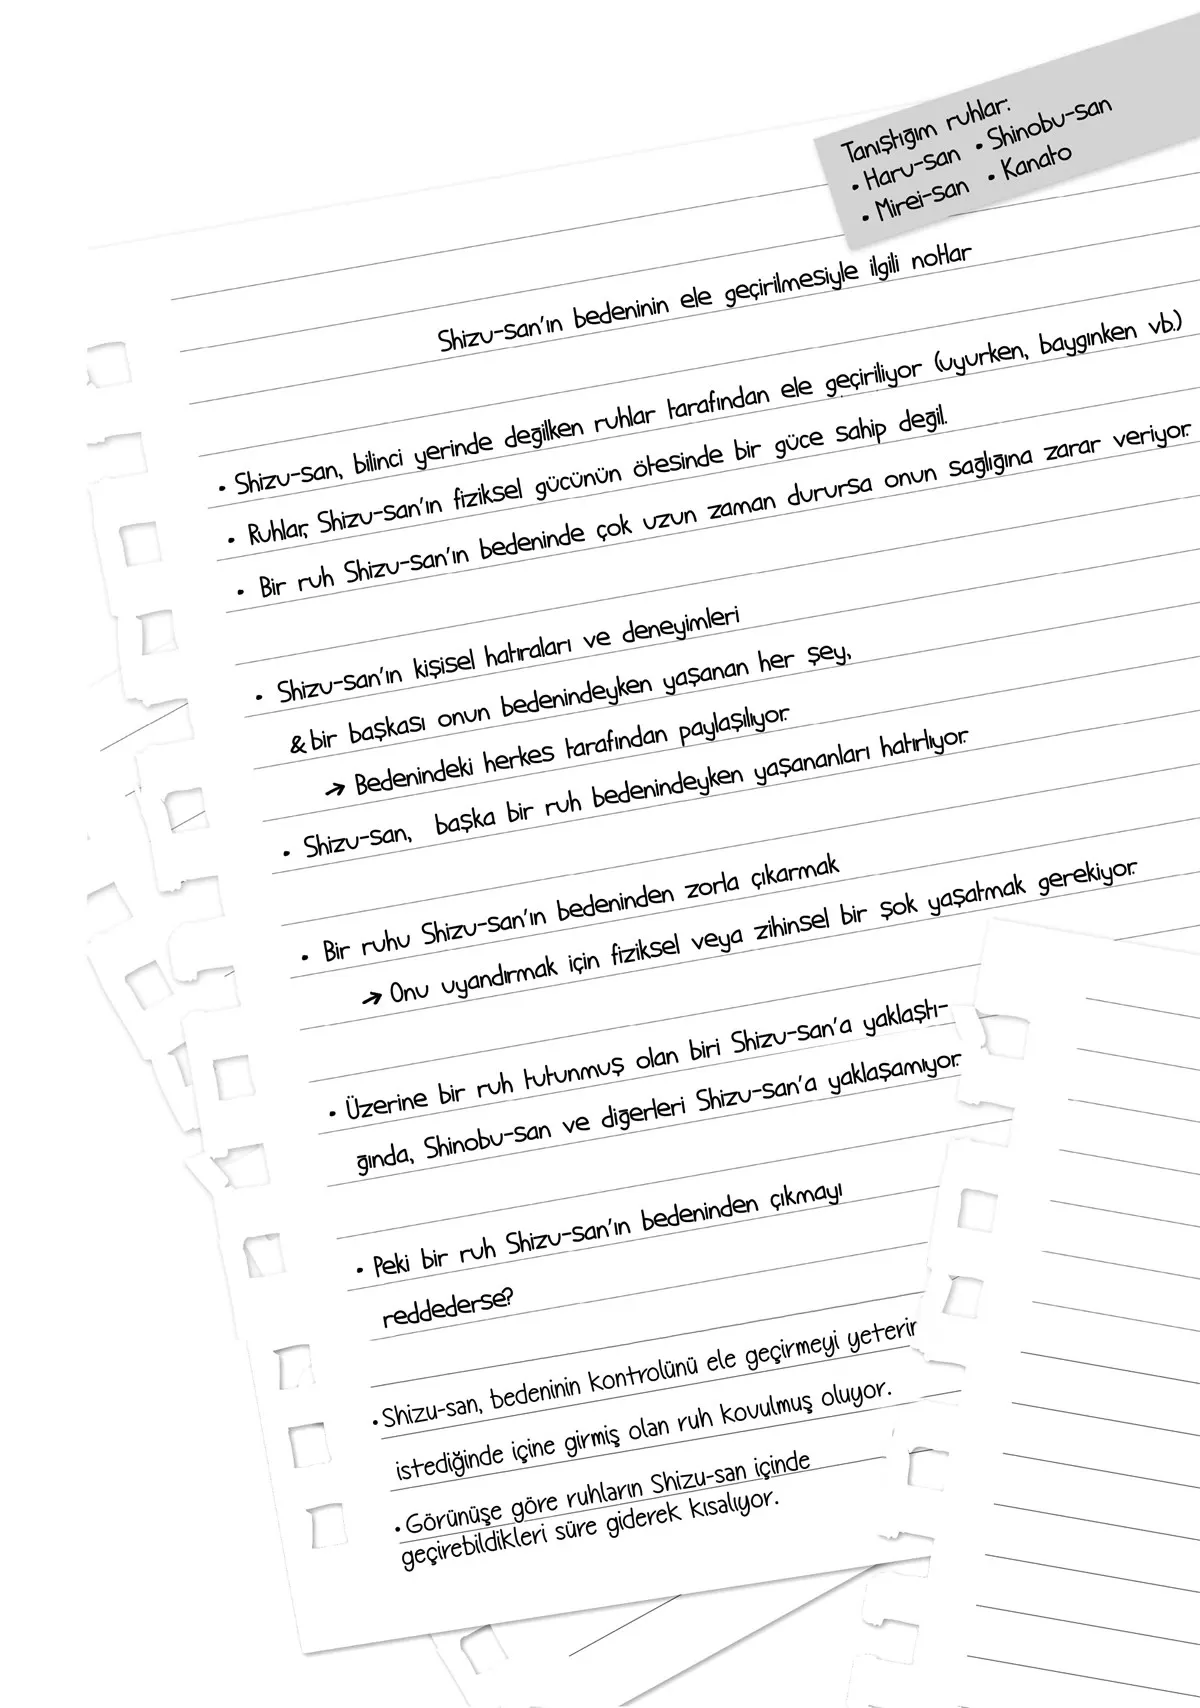 Tanıştığım ruhlar:
• Haru-san • Shinobu-san
• Mirei-san • Kanato
Shizu-san'ın bedeninin ele geçirilmesiyle ilgili notlar
• Shizu-san, bilinci yerinde değilken ruhlar tarafından ele geçiriliyor (uyurken, baygınken vb.)
• Ruhlar, Shizu-san'ın fiziksel gücünün ötesinde bir güce sahip değil.
• Bir ruh Shizu-san'ın bedeninde çok uzun zaman durursa onun sağlığına zarar veriyor.
• Shizu-san'ın kişisel hatıraları ve deneyimleri
& bir başkası onun bedenindeyken yaşanan her şey,
→ Bedenindeki herkes tarafından paylaşılıyor.
• Shizu-san, başka bir ruh bedenindeyken yaşananları hatırlıyor.
• Bir ruhu Shizu-san'ın bedeninden zorla çıkarmak
→ Onu uyandırmak için fiziksel veya zihinsel bir şok yaşatmak gerekiyor.
• Üzerine bir ruh tutunmuş olan biri Shizu-san'a yaklaştı-
ğında, Shinobu-san ve diğerleri Shizu-san'a yaklaşamıyor.
• Peki bir ruh Shizu-san'ın bedeninden çıkmayı
reddederse?
• Shizu-san, bedeninin kontrolünü ele geçirmeyi yeterin
istediğinde içine girmiş olan ruh kovulmuş oluyor.
• Görünüşe göre ruhların Shizu-san içinde
geçirebildikleri süre giderek kısalıyor.